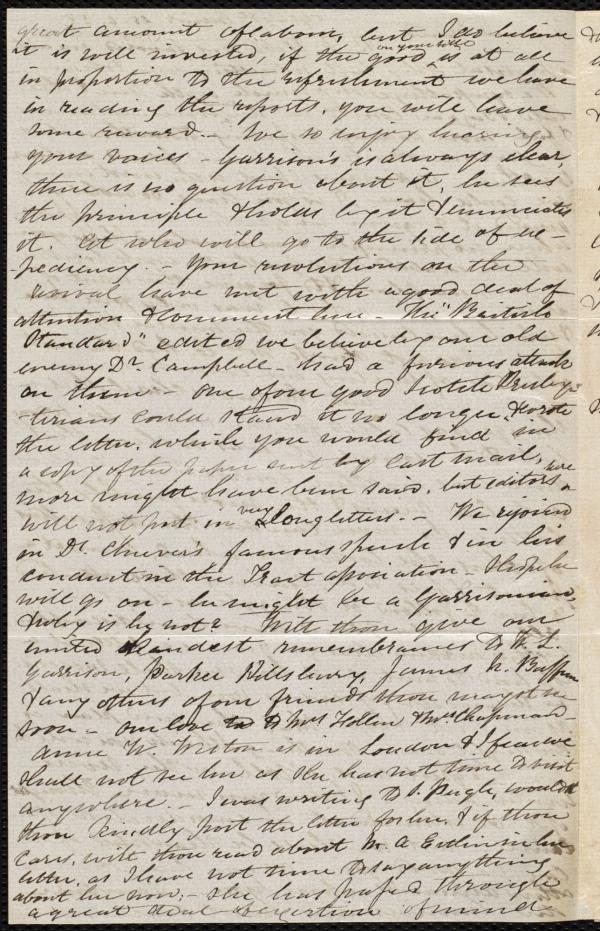 great amount of labour, but I do believe
it is well invested, if the good on your side is at all
in proportion to the refreshment we have
in reading the reports, you will have
some reward. – We so enjoy hearing
your voices – Garrison's is always clear,
there is no question about it, he sees
the principle & holds by it & enunciates
it. let who will go to the side of ex-
-pediency. – Your resolutions on the
revival have met with a good deal of
attention & comment here – The "British
Standard" edited we believe by our old
enemy Dr. Campbell – had a furious attack
on them – one of our good Scotch Presby-
-terians could stand it no longer, & wrote
the letter, which you would find in
a copy of the paper sent by last mail,
more might have been said, but editors
will not put in very long letters. – We rejoiced
in Dr. Cheever's famous speech & in his
conduct in the Tract association –
will go on – he might be a Garrisonian,
& why is he not? Wilt thou give our
united kindest remembrances to W. L.
Garrison, Parker Pillsbury, James N. Buffum
& any others of our friends thou mayst see
soon – our love to Mrs Follen & Mrs Chapman –
Anne W. Weston is in London & I fear we
shall not see her as she has not time to visit
anywhere. – I was writing to S. Pugh, would
thou kindly post the letter for her, & if thou
cares, wilt thou read about M. A Estlin in her
letter, as I have not time to say anything
about her now, – she has passed through
a great deal of exertion of mind